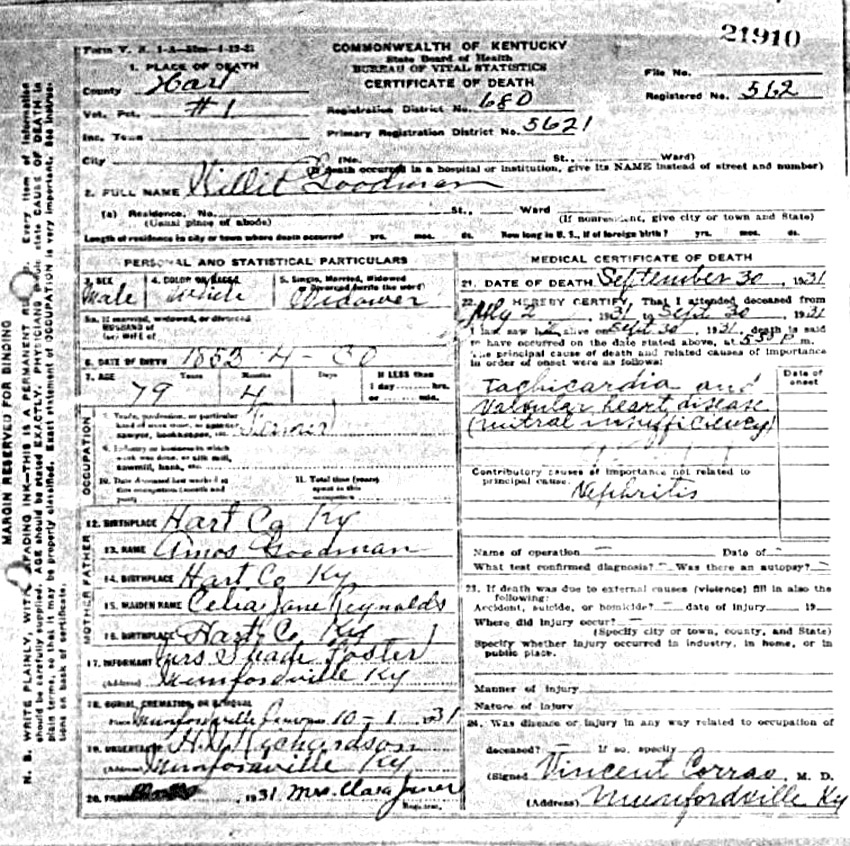 21910
Form V. S. 1-A—50m—1-12-31
COMMONWEALTH OF KENTUCKY
State Board of Health
BUREAU OF VITAL STATISTICS
CERTIFICATE OF DEATH
1. PLACE OF DEATH
County Hart
Vot. Pct. #1
Inc. Town
City
File No.
Registered No. 562
Registration District No. 680
Primary Registration District No. 5621
(No. St., Ward)
(If death occurred in a hospital or institution, give its NAME instead of street and number)
2. FULL NAME Willie Goodman
(a) Residence, No. St., Ward
(Usual place of abode) (If nonresident, give city or town and State)
Length of residence in city or town where death occurred yrs. mos. ds. How long in U. S., if of foreign birth? yrs. mos. ds.
PERSONAL AND STATISTICAL PARTICULARS
3. SEX Male
4. COLOR OR RACE White
5. Single, Married, Widowed or Divorced (write the word) Widower
5a. If married, widowed, or divorced
HUSBAND of
(or) WIFE of
6. DATE OF BIRTH 1853-4-30
7. AGE Years Months Days If LESS than
79 4 1 day hrs.
or min.
OCCUPATION
8. Trade, profession, or particular
kind of work done, as spinner
sawyer, bookkeeper, etc. Farmer
9. Industry or business in which
work was done, as silk mill,
sawmill, bank, etc.
10. Date deceased last worked at
this occupation (month and
year)
11. Total time (years)
spent in this
occupation
12. BIRTHPLACE Hart Co Ky
FATHER
13. NAME Amos Goodman
14. BIRTHPLACE Hart Co Ky
MOTHER
15. MAIDEN NAME Celia Jane Reynolds
16. BIRTHPLACE Hart Co Ky
17. INFORMANT Mrs Shade Foster
(Address) Munfordville Ky
18. BURIAL, CREMATION, OR REMOVAL
Place Munfordville 10-1 1931
19. UNDERTAKER Richardson
(Address) Munfordville Ky
20. FILED 1931 Mrs. Clara Jones
Registrar.
MEDICAL CERTIFICATE OF DEATH
21. DATE OF DEATH September 30, 1931
22. I HEREBY CERTIFY, That I attended deceased from
July 2, 1931 to Sept 30, 1931
I last saw h alive on Sept 30, 1931, death is said
to have occurred on the date stated above, at 5:55 P.m.
The principal cause of death and related causes of importance
in order of onset were as follows:
Date of onset
Tachicardia and
Valvular heart disease
(mitral insufficiency)
Contributory causes of importance not related to
principal cause.
Nephritis
Name of operation — Date of
What test confirmed diagnosis? — Was there an autopsy? —
23. If death was due to external causes (violence) fill in also the
following:
Accident, suicide, or homicide? — date of injury 19
Where did injury occur? —
(Specify city or town, county, and State)
Specify whether injury occurred in industry, in home, or in
public place.
Manner of injury
Nature of injury
24. Was disease or injury in any way related to occupation of
deceased? — If so, specify
(Signed Vincent Corrao, M. D.
(Address) Munfordville Ky
MARGIN RESERVED FOR BINDING
N. B. WRITE PLAINLY, WITH UNFADING INK—THIS IS A PERMANENT RECORD. Every item of information
should be carefully supplied. AGE should be stated EXACTLY. PHYSICIANS should state CAUSE OF DEATH in
plain terms, so that it may be properly classified. Exact statement of OCCUPATION is very important. See instruc-
tions on back of certificate.